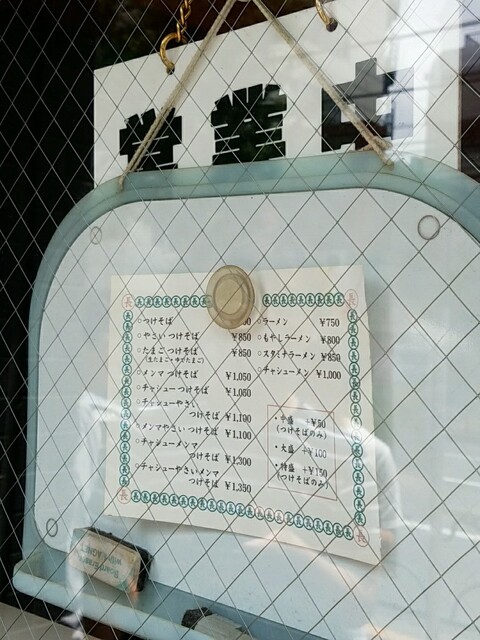 営業中
○つけそば
○やさいつけそば ¥850
○たまごつけそば ¥850
(生たまご・ゆでたまご)
○メンマつけそば ¥1,050
○チャシューつけそば ¥1,050
○チャシューやさい
つけそば ¥1,100
○メンマやさいつけそば ¥1,100
○チャシューメンマ
つけそば ¥1,300
○チャシューやさいメンマ
つけそば ¥1,350
○ラーメン ¥750
○もやしラーメン ¥800
○スタミナラーメン ¥850
○チャシューメン ¥1,000
・中盛 +¥50
(つけそばのみ)
・大盛 +¥100
・特盛 +¥150
(つけそばのみ)